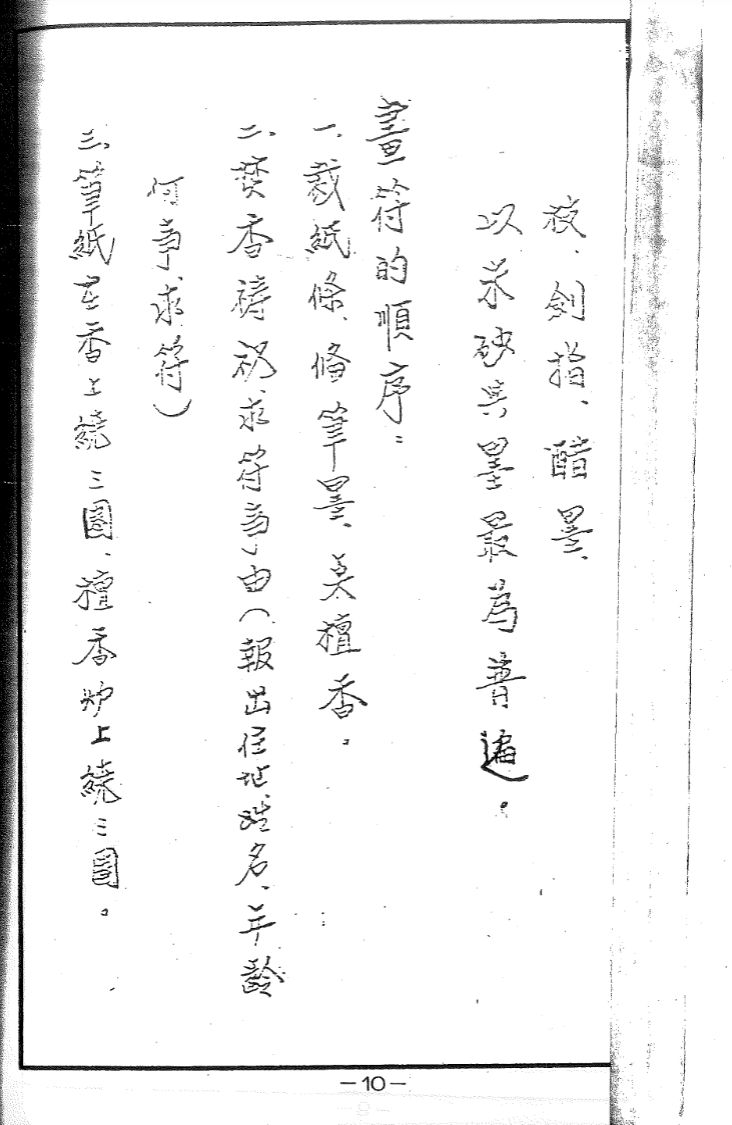 液、劍指、醋墨、
以朱砂與墨最為普遍。
畫符的順序：
一、裁紙條、備筆墨、炎檀香。
二、焚香禱祝、求符事由（報出住址、姓名、年齡
何事、求符）
三、筆紙在香上繞三圈、檀香炉上繞三圈。
－10－